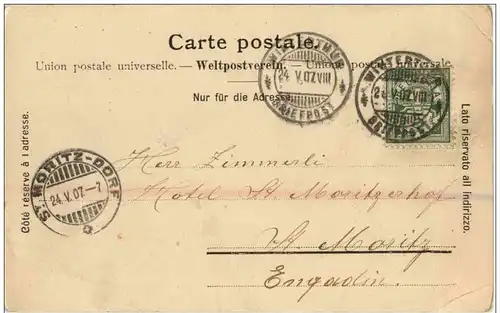 Carte postale.
Union postale universelle. — Weltpostverein. — Unione postale
Nur für die Adresse
Côté réservé à l adresse.
Lato riservato all indirizzo.
WINTERTHUR
24 V.07 VIII
BRIEFPOST
WINTERTHUR
V.07 VIII
BRIEFPOST
ST. MORITZ-DORF
24.V.07.–7
Herr Zimmerli
Hotel St. Moritzerhof
St. Moritz
Engadin.